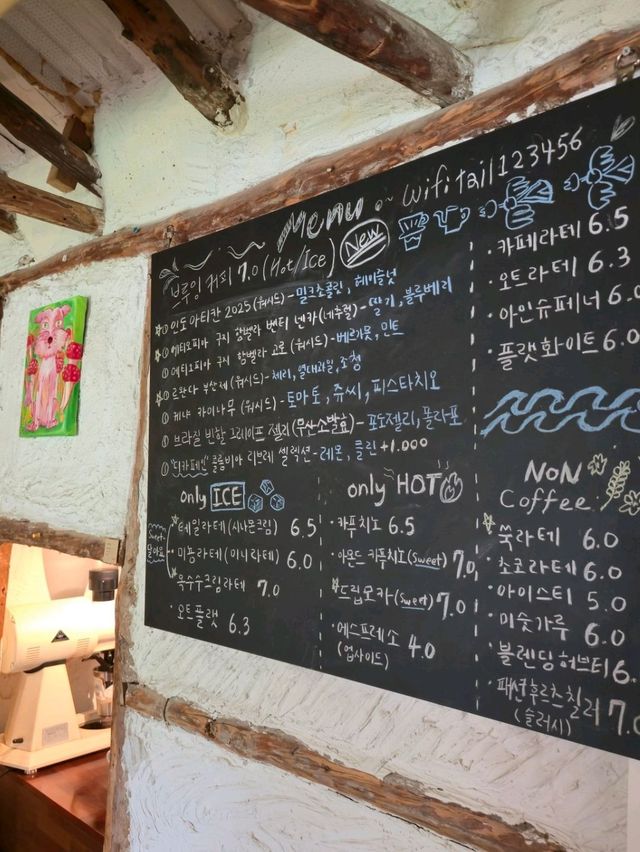 Menu wifi tail123456
브루잉 커피 7.0 (Hot/Ice) New
① 인도 아티칸 2025 (워시드) - 밀크초콜릿, 헤이즐넛
① 에티오피아 구지 함벨라 벤티 넨카 (네추럴) - 딸기, 블루베리
① 에티오피아 구지 함벨라 고로 (워시드) - 베르가못, 민트
① 르완다 부산제 (워시드) - 체리, 열대과일, 조청
① 케냐 카이나무 (워시드) - 토마토, 쥬씨, 피스타치오
① 브라질 빈할 그레이프 젤리 (무산소발효) - 포도젤리, 폴라포
① "디카페인" 콜롬비아 리브레 셀렉션 - 레몬, 클린 +1.000
only ICE
Sweet
테일라테 (시나몬크림) 6.5
미뇽라테 (미니라테) 6.0
옥수수크림라테 7.0
· 오트플랫 6.3
only HOT
· 카푸치노 6.5
· 아몬드 카푸치노 (Sweet) 7.0
· 드립모카 (Sweet) 7.0
· 에스프레소 4.0
(업사이드)
· 카페라테 6.5
· 오트라테 6.3
· 아인슈페너 6.0
· 플랫화이트 6.0
NoN
Coffee
쑥라테 6.0
· 초코라테 6.0
· 아이스티 5.0
· 미숫가루 6.0
· 블렌딩허브티 6.
· 패션후르츠칠러 7.0
(슬러시)